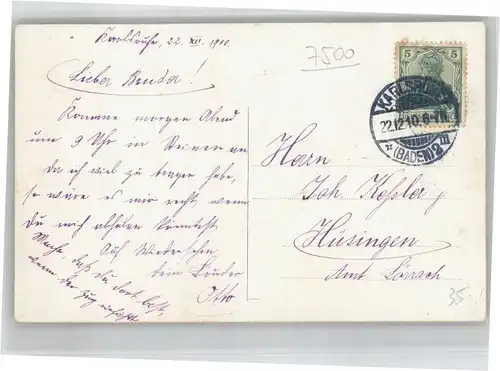 Karlsruhe, 22. XII. 1910.
7500
Lieber Bruder!
Komme morgen Abend
um 9 Uhr in Steinen an
da ich viel zu tragen habe,
so wäre es mir recht, wenn
du mich abholen könntest.
Auf Wiedersehen
dein Bruder
Otto
Mache, daß du dort bist,
wenn der Zug einfährt
5 5
KARLSRUHE
22.12.10. 6-7N.
* (BADEN) 2
Herrn
Joh. Kessler
Hüsingen
Amt Lörrach
35.-